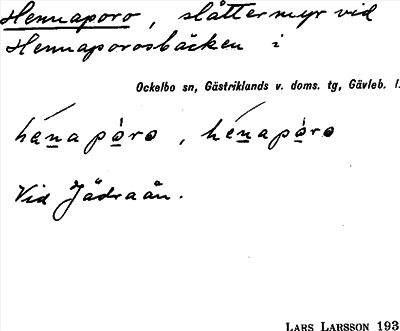 Hennaporo, slåttermyr vid
Hennaporosbäcken i
Ockelbo sn, Gästriklands v. doms. tg, Gävleb. l.
hánapòro, hénapòro
Vid Jädraån.
LARS LARSSON 193